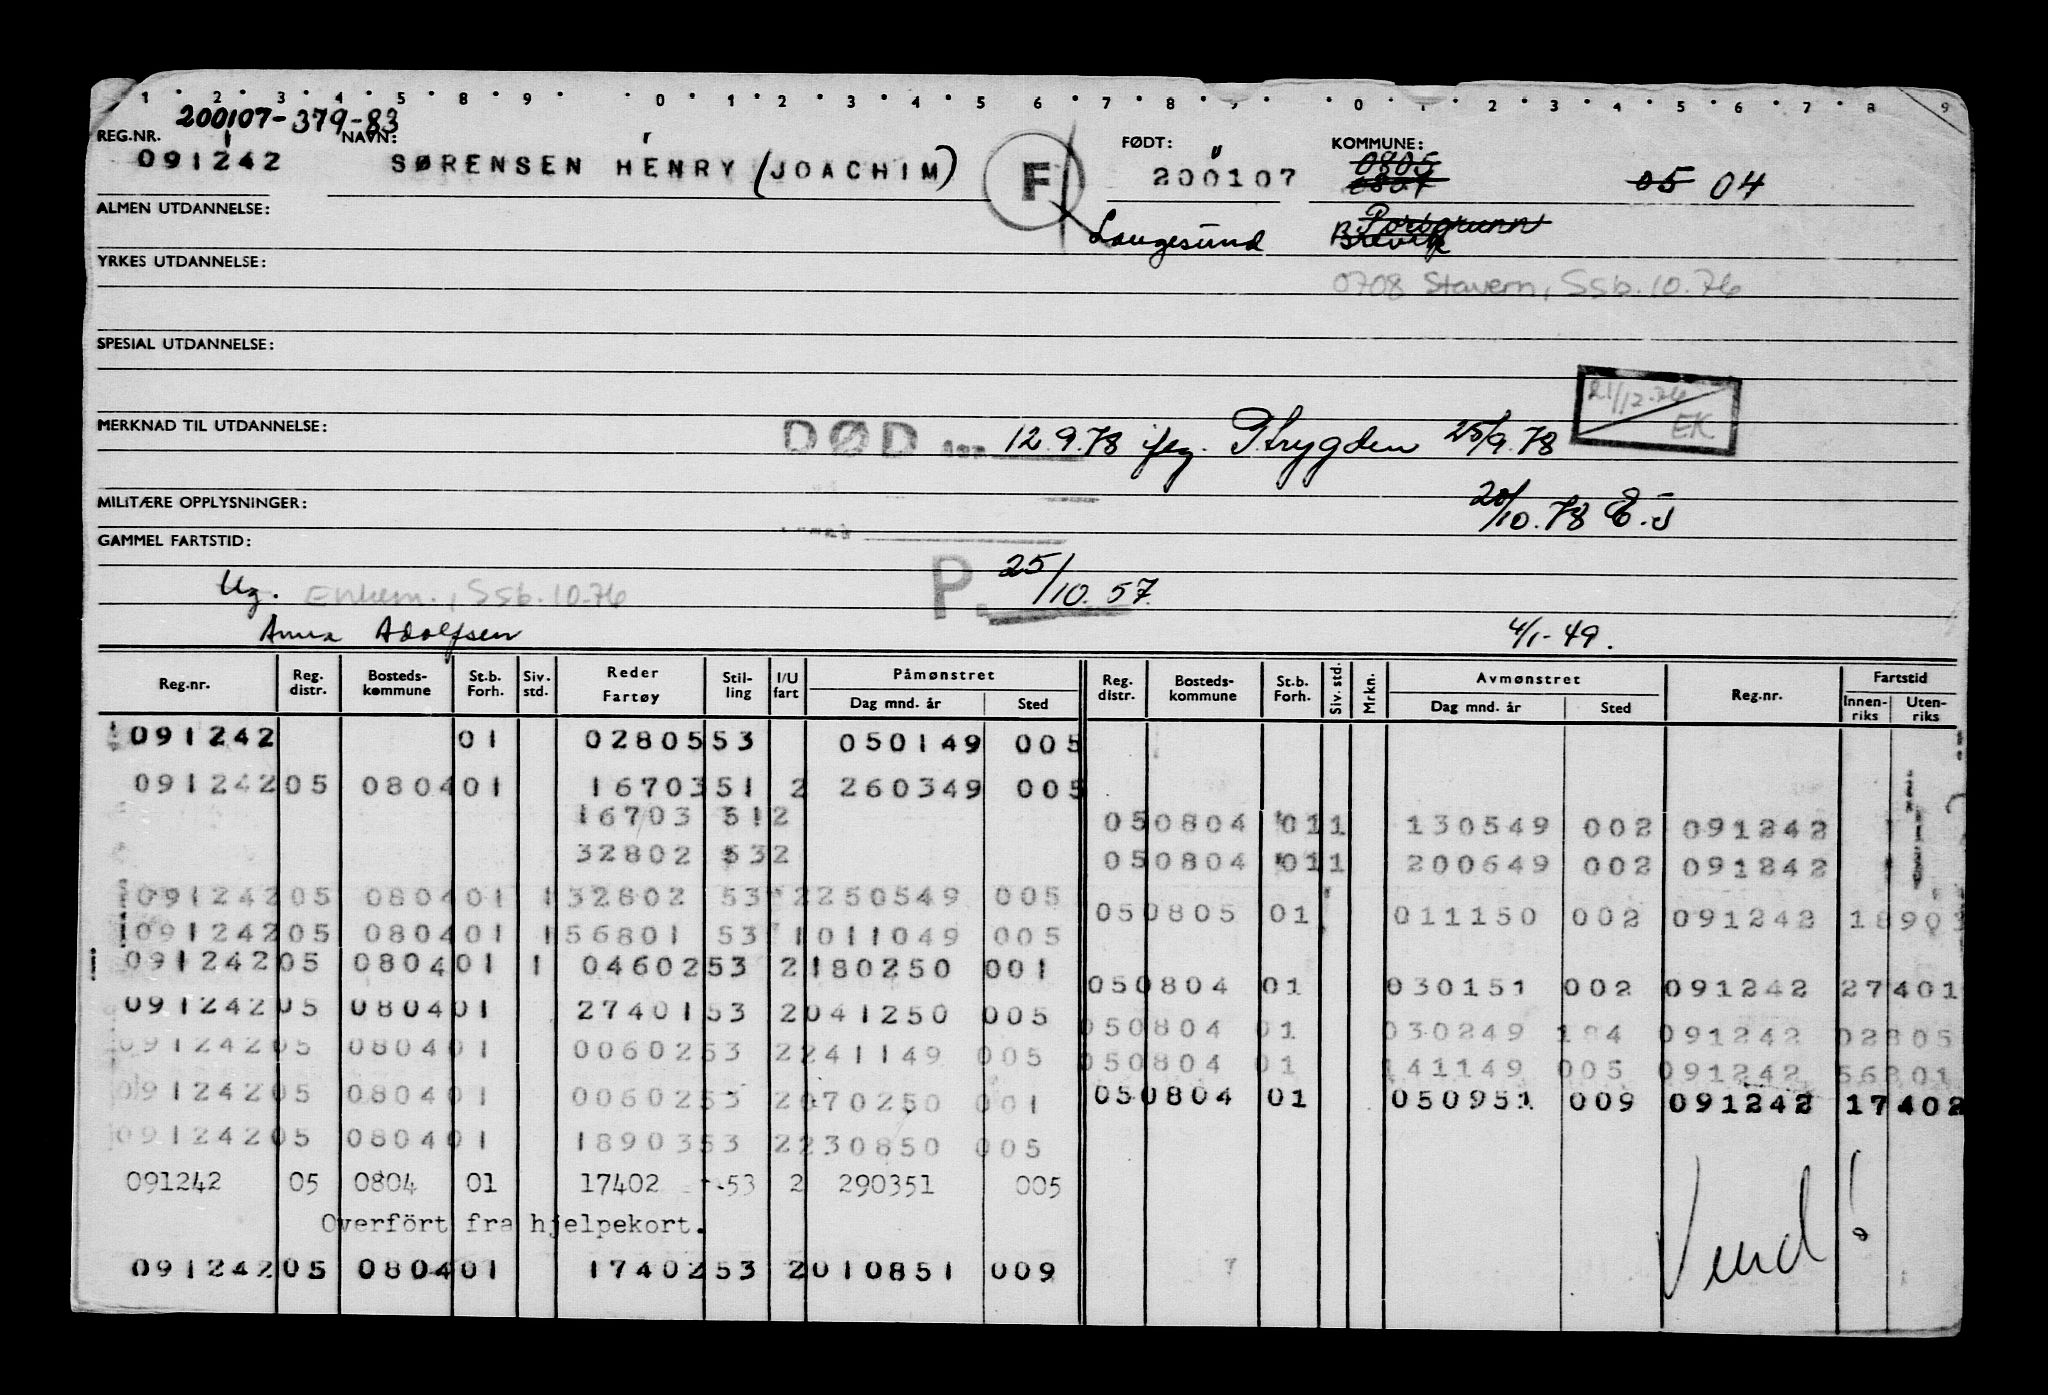 1 2 3 4 5 8 9 0 1 2 3 4 5 6 7 8 9 0 1 2 3 4 5 6 7 8 9
200107-379-83
REG.NR. NAVN: FØDT: KOMMUNE:
0805
091242 SØRENSEN HENRY (JOACHIM) F 200107 0807 05 04
ALMEN UTDANNELSE:
Porsgrunn
Langesund Brevik
YRKES UTDANNELSE:
0708 Stavern, Ssb. 10.76
SPESIAL UTDANNELSE:
21/12-76
EK
MERKNAD TIL UTDANNELSE: DØD den 12.9.78 iføg. P.trygden 25/9.78
MILITÆRE OPPLYSNINGER: 20/10.78 E.J
GAMMEL FARTSTID:
P. 25/10.57.
Ug. Enkem., Ssb. 10-76
Anna Adolfsen 4/1-49.
Reg.nr. Reg. distr. Bosteds-kommune St.b. Forh. Siv. std. Reder Fartøy Stil-ling I/U fart Påmønstret Dag mnd. år Sted Reg. distr. Bosteds-kommune St.b. Forh. Siv. std. Mrkn. Avmønstret Dag mnd. år Sted Reg.nr. Fartstid Innen-riks Uten-riks
091242 01 02805 53 050149 005
091242 05 0804 01 16703 51 2 260349 005
16703 51 2 05 0804 01 1 130549 002 091242
32802 53 2 05 0804 01 1 200649 002 091242
091242 05 0804 01 1 32802 53 2 250549 005
05 0805 01 011150 002 091242 18903
091242 05 0804 01 1 56801 53 1 011049 005
091242 05 0804 01 1 04602 53 2 180250 001
05 0804 01 030151 002 091242 27401
091242 05 0804 01 27401 53 2 041250 005
05 0804 01 030249 184 091242 02805
091242 05 0804 01 00602 53 2 241149 005
05 0804 01 141149 005 091242 56801
091242 05 0804 01 00602 53 2 070250 001
05 0804 01 050951 009 091242 17402
091242 05 0804 01 18903 53 2 230850 005
091242 05 0804 01 17402 53 2 290351 005
Overført fra hjelpekort.
Vend!
091242 05 0804 01 17402 53 2 010851 009